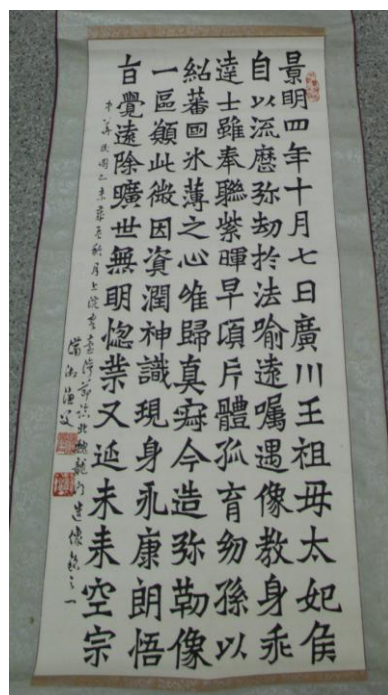 景明四年十月七日廣川王祖母太妃侯
自以流歷弥劫於法喻遠囑遇像教身乖
達士雖奉聯紫暉早頃片體孤育幼孫以
紹蕃國氷薄之心唯歸真寂今造弥勒像
一區願此微因資潤神識現身永康朗悟
旨覺遠除曠世無明惚業又延未来空宗
中華民國乙未秋月上浣書北魏龍門造像銘之一